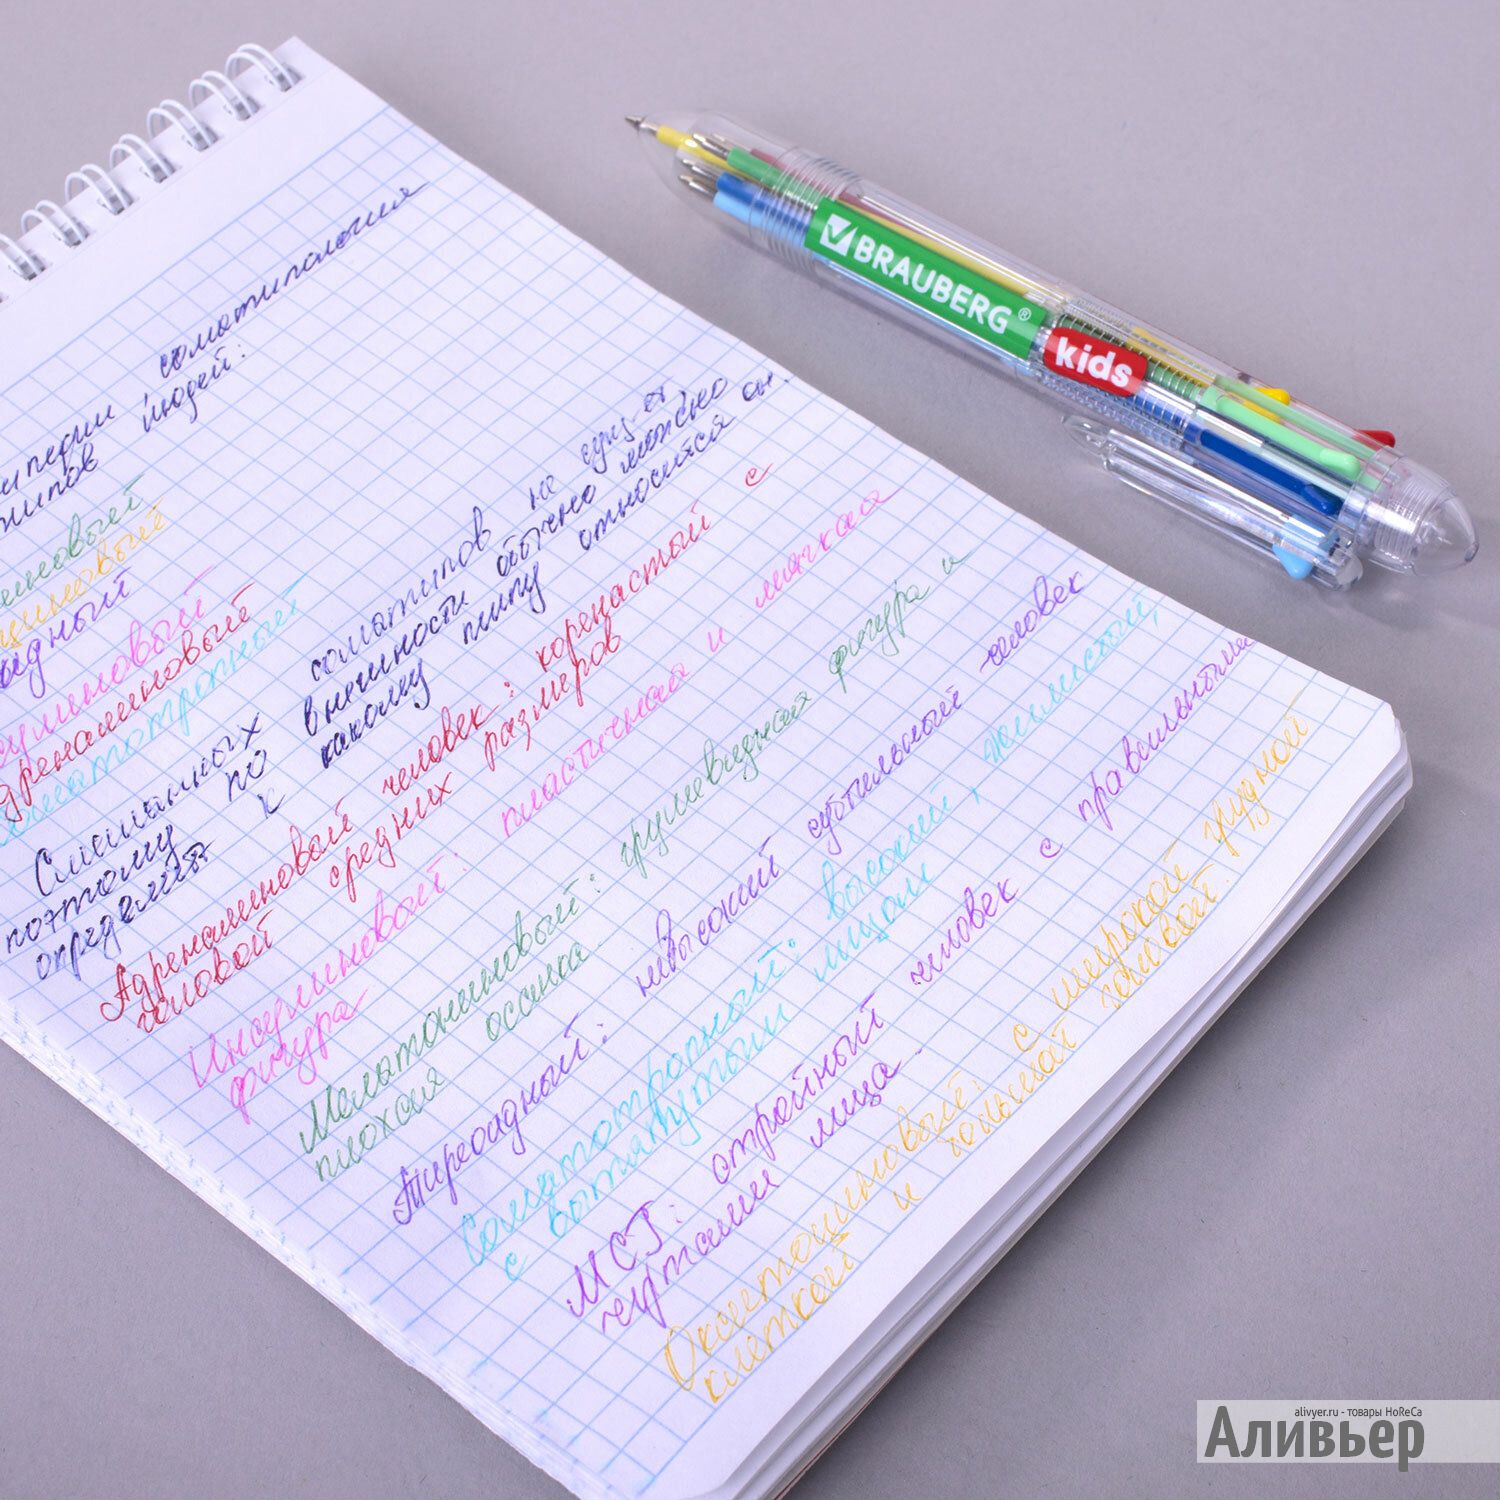 соматипология
типов людей:
Смешанных соматипов не сущ-ет
поэтому по внешности обычно можно
определить к какому типу относится
Адреналиновый человек: коренастый с
головой средних размеров
Инсулиновый: пластичная и мягкая
фигура
Мелатониновый: грушевидная фигура и
плохая осанка.
Тиреоидный: невысокий субтильный человек
Соматотропный: высокий, жилистый,
с вытянутым лицом
МСГ: стройный человек с правильными
чертами лица.
Окситоциновый: с широкой грудной
клеткой и головой.
BRAUBERG®
kids
alivyer.ru - товары HoReCa
Аливьер